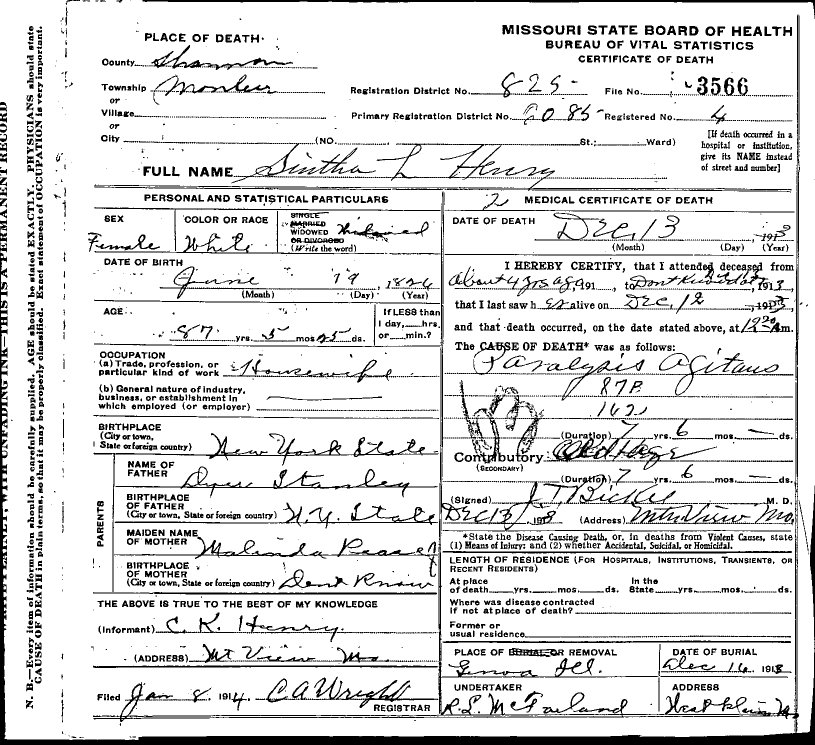 MISSOURI STATE BOARD OF HEALTH
BUREAU OF VITAL STATISTICS
CERTIFICATE OF DEATH
PLACE OF DEATH
County Shannon
Township Montier
or
Village
or
City (NO. St.: Ward)
Registration District No. 825 File No. 3566
Primary Registration District No. 6085 Registered No. 4
[If death occurred in a
hospital or institution,
give its NAME instead
of street and number]
FULL NAME Sintha L Henry
PERSONAL AND STATISTICAL PARTICULARS
SEX
Female
COLOR OR RACE
White
SINGLE
MARRIED
WIDOWED
OR DIVORCED
(Write the word)
Widowed
DATE OF BIRTH
June 19, 1826
(Month) (Day) (Year)
AGE
87 yrs. 5 mos. 25 ds.
If LESS than
1 day, hrs.
or min.?
OCCUPATION
(a) Trade, profession, or
particular kind of work Housewife
(b) General nature of industry,
business, or establishment in
which employed (or employer)
BIRTHPLACE
(City or town,
State or foreign country) New York State
PARENTS
NAME OF
FATHER Dyer Stanley
BIRTHPLACE
OF FATHER
(City or town, State or foreign country) N.Y. State
MAIDEN NAME
OF MOTHER Malinda
BIRTHPLACE
OF MOTHER
(City or town, State or foreign country) Dont Know
THE ABOVE IS TRUE TO THE BEST OF MY KNOWLEDGE
(Informant) C. K. Henry
(ADDRESS) Mt View Mo.
Filed Jan 8, 1914, C A Wright
REGISTRAR
2 MEDICAL CERTIFICATE OF DEATH
DATE OF DEATH
Dec, 13 1913
(Month) (Day) (Year)
I HEREBY CERTIFY, that I attended deceased from
About 4 yrs ago 191 , to Dont Know dat, 1913
that I last saw her alive on Dec, 12 1913
and that death occurred, on the date stated above, at 12 m.
The CAUSE OF DEATH* was as follows:
Paralysis Agitans
87B
162
(Duration) 7 yrs. 6 mos. — ds.
Contributory Old Age
(SECONDARY)
(Duration) 7 yrs. 6 mos. — ds.
(Signed) J. T. M. D.
Dec 13, 1913 (Address) Mtn View Mo.
*State the Disease Causing Death, or, in deaths from Violent Causes, state
(1) Means of Injury; and (2) whether Accidental, Suicidal, or Homicidal.
LENGTH OF RESIDENCE (FOR HOSPITALS, INSTITUTIONS, TRANSIENTS, OR
RECENT RESIDENTS)
At place In the
of death yrs. mos. ds. State yrs. mos. ds.
Where was disease contracted
if not at place of death?
Former or
usual residence
PLACE OF BURIAL OR REMOVAL
Genoa Ill.
DATE OF BURIAL
Dec 16 1913
UNDERTAKER
R. L. McFarland
ADDRESS
West Plains Mo
N. B.—Every item of information should be carefully supplied. AGE should be stated EXACTLY. PHYSICIANS should state
CAUSE OF DEATH in plain terms, so that it may be properly classified. Exact statement of OCCUPATION is very important.
WRITE PLAINLY, WITH UNFADING INK—THIS IS A PERMANENT RECORD